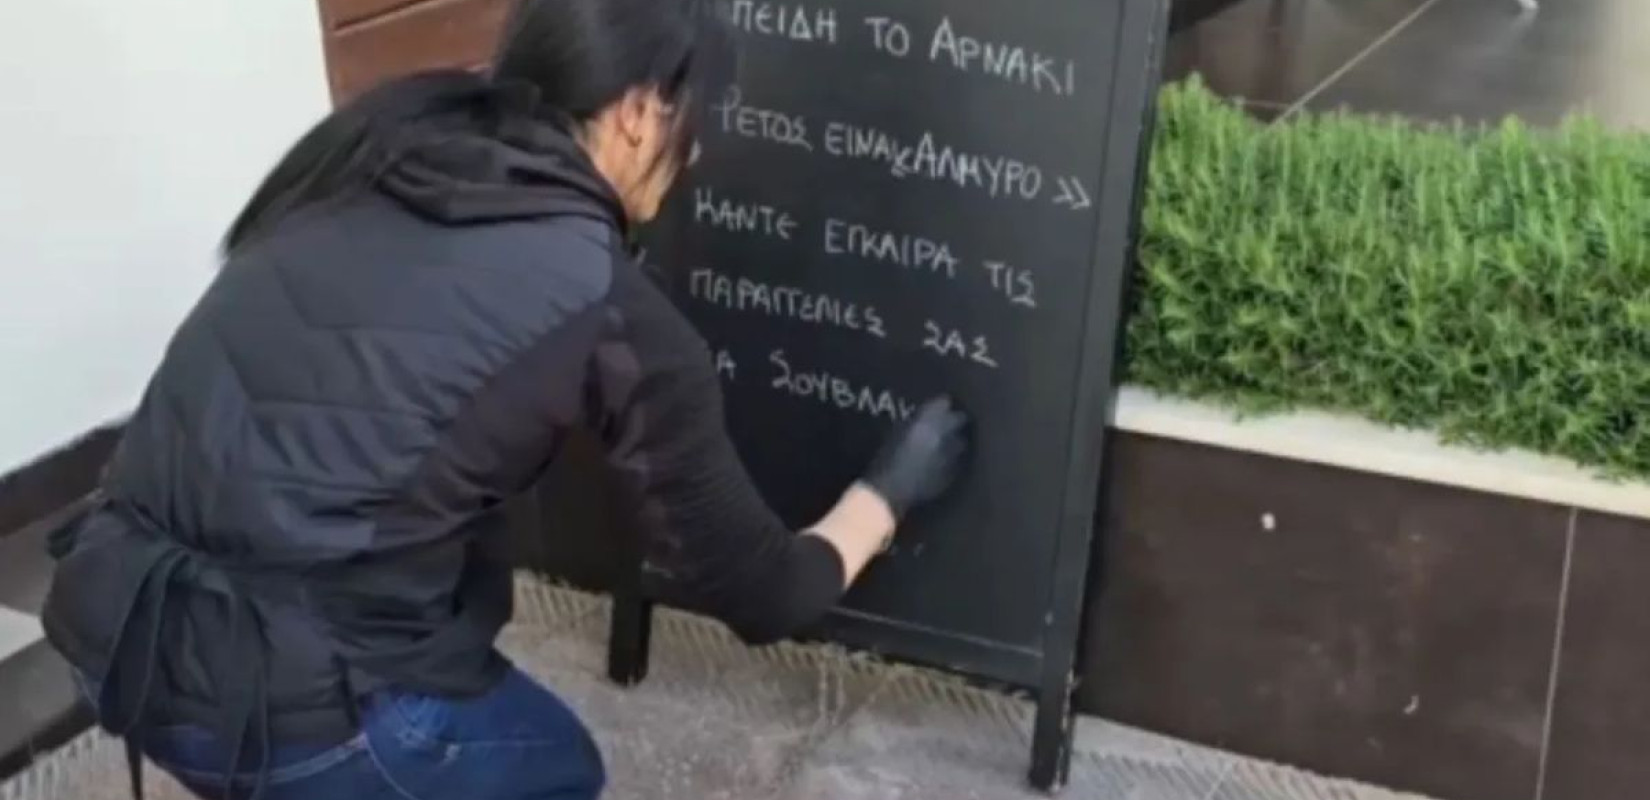 ΠΕΙΔΗ ΤΟ ΑΡΝΑΚΙ
ΦΕΤΟΣ ΕΙΝΑΙ «ΑΛΜΥΡΟ»
ΚΑΝΤΕ ΕΓΚΑΙΡΑ ΤΙΣ
ΠΑΡΑΓΓΕΛΙΕΣ ΣΑΣ
ΣΟΥΒΛΑΚ